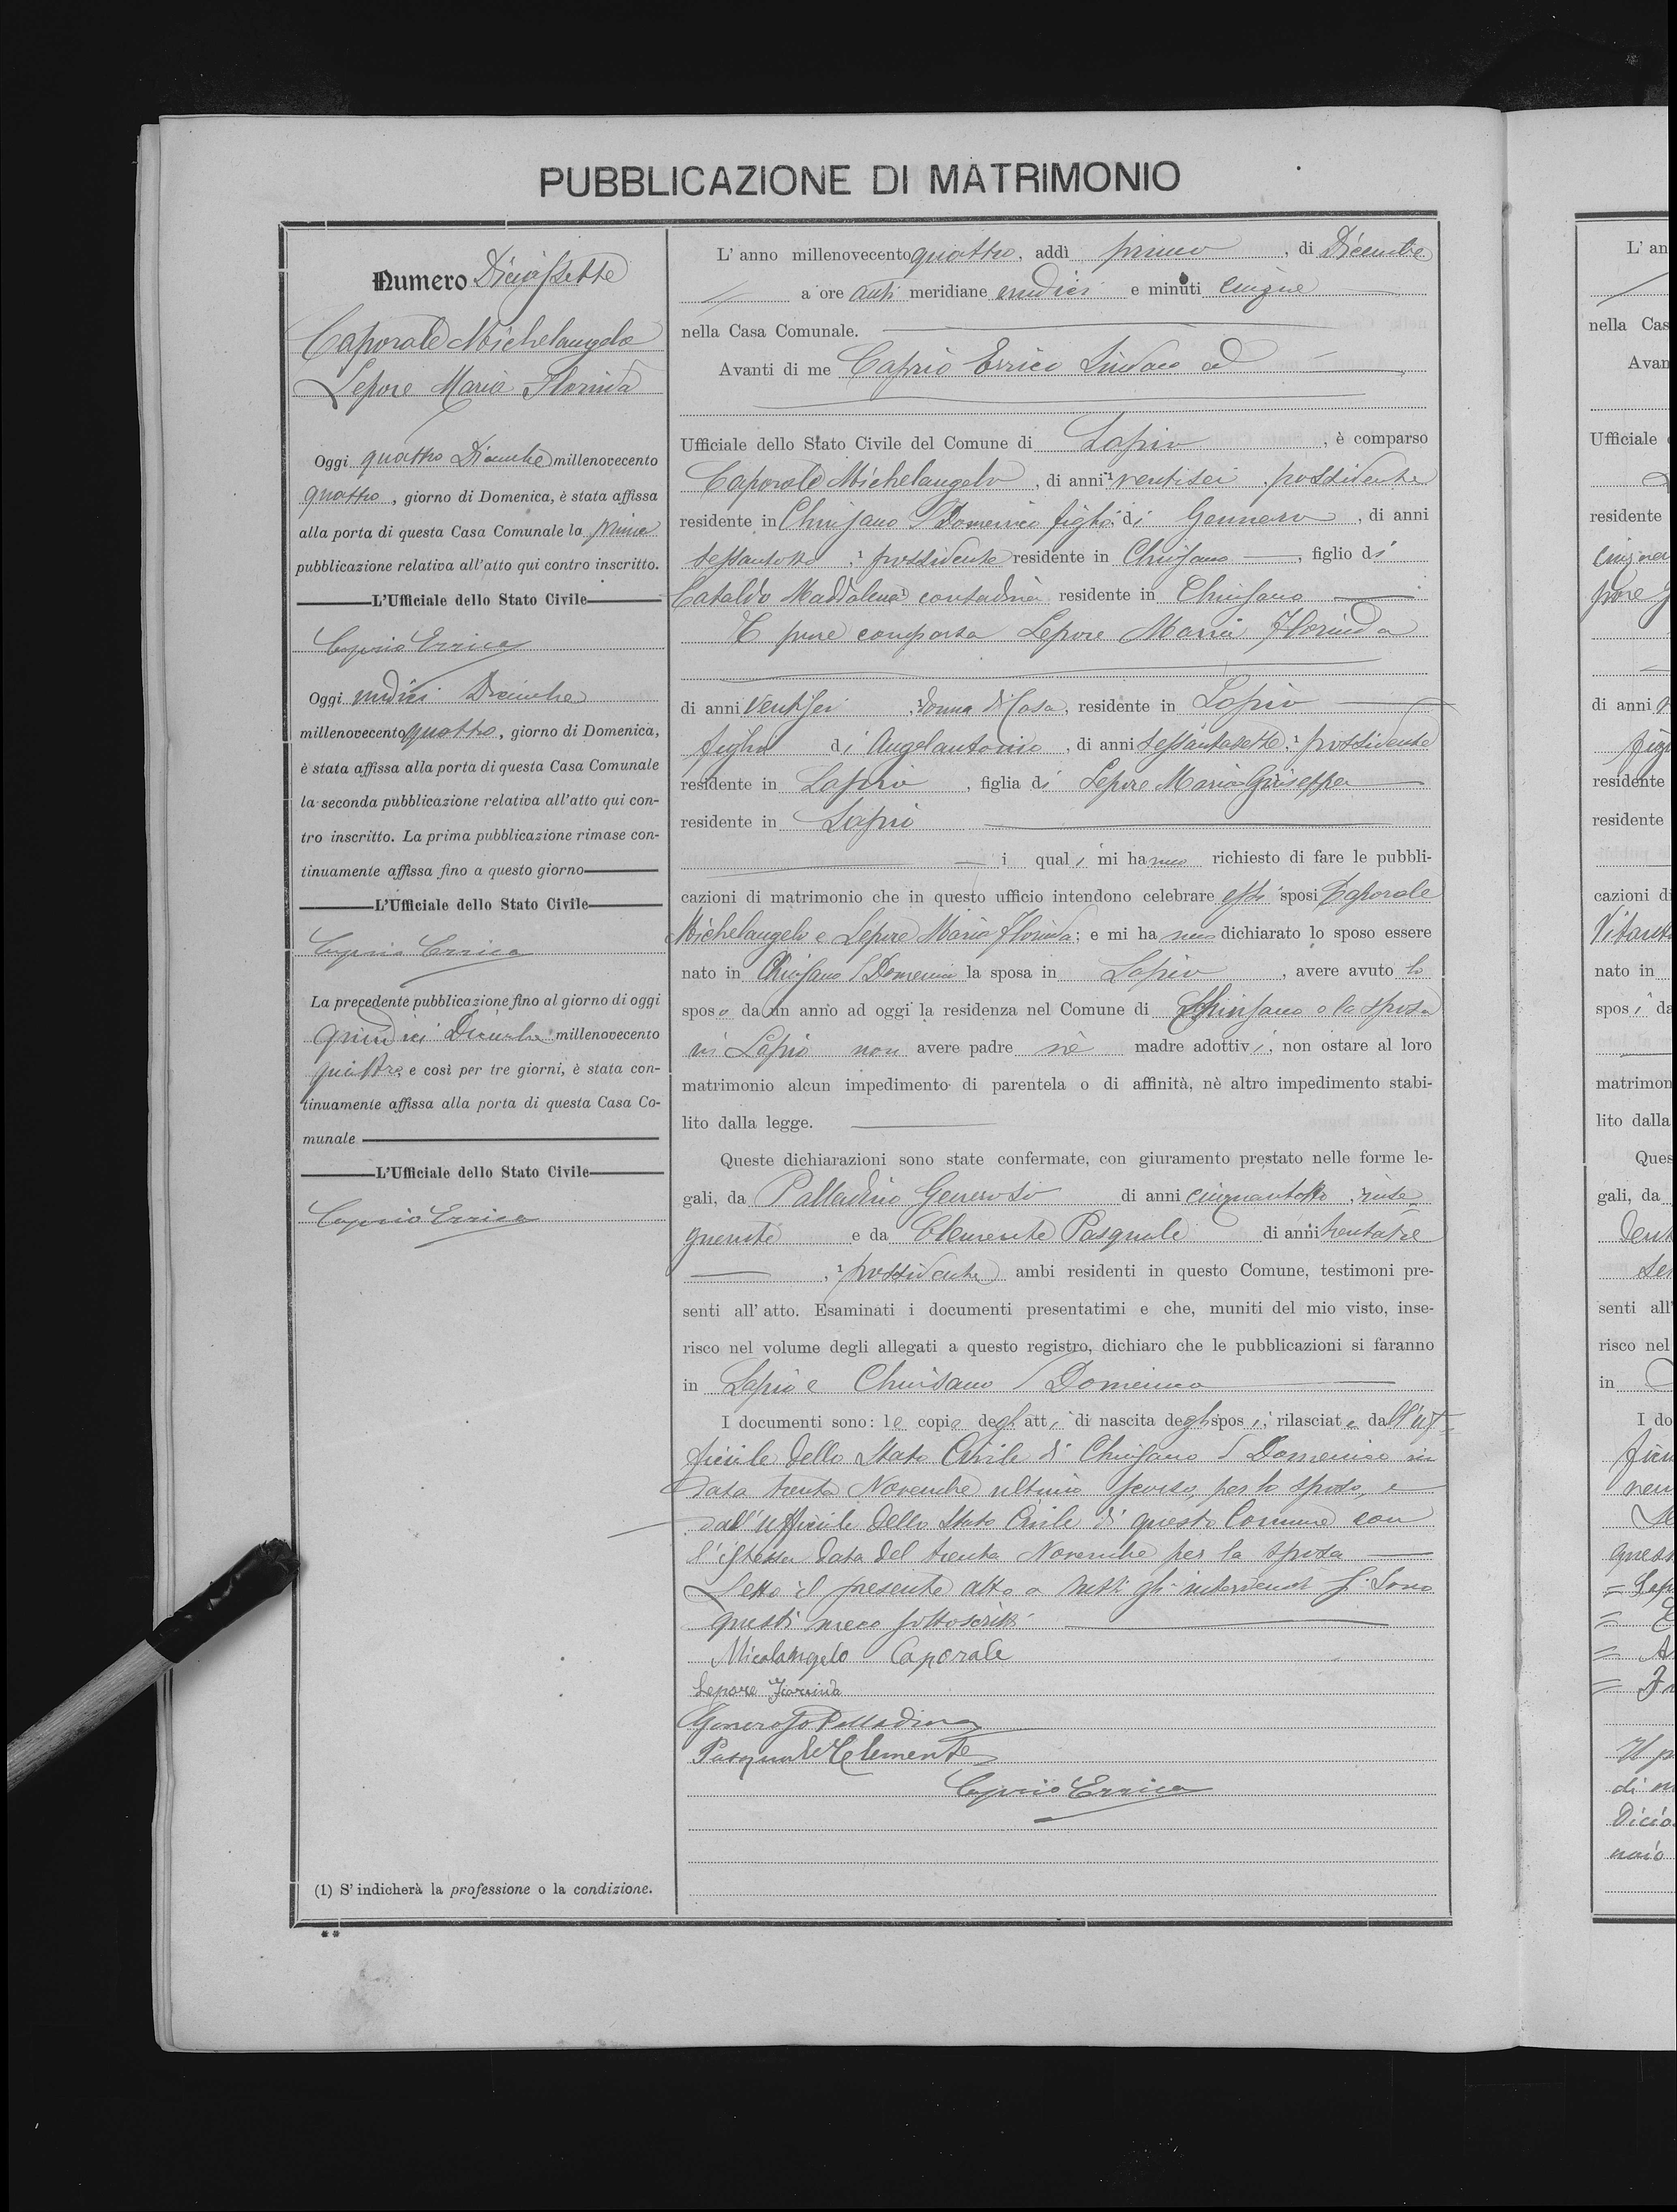 PUBBLICAZIONE DI MATRIMONIO
Numero Diciassette
Caporale Michelangelo
Lepore Maria Florinda
Oggi quattro Dicembre millenovecento
quattro, giorno di Domenica, è stata affissa
alla porta di questa Casa Comunale la prima
pubblicazione relativa all'atto qui contro inscritto.
L'Ufficiale dello Stato Civile
Caprio Errico
Oggi undici Dicembre
millenovecento quattro, giorno di Domenica,
è stata affissa alla porta di questa Casa Comunale
la seconda pubblicazione relativa all'atto qui con-
tro inscritto. La prima pubblicazione rimase con-
tinuamente affissa fino a questo giorno
L'Ufficiale dello Stato Civile
Caprio Errico
La precedente pubblicazione fino al giorno di oggi
quindici Dicembre millenovecento
quattro, e così per tre giorni, è stata con-
tinuamente affissa alla porta di questa Casa Co-
munale
L'Ufficiale dello Stato Civile
Caprio Errico
(1) S' indicherà la professione o la condizione.
L' anno millenovecento quattro, addì primo, di Dicembre
a ore anti meridiane undici e minuti cinque
nella Casa Comunale.
Avanti di me Caprio Errico Sindaco ed
Ufficiale dello Stato Civile del Comune di Lapio, è comparso
Caporale Michelangelo, di anni ventisei, possidente
residente in Chiusano S Domenico figlio di Gennaro, di anni
sessantotto, possidente residente in Chiusano, figlio di
Cataldo Maddalena contadina residente in Chiusano
È pure comparsa Lepore Maria Florinda
di anni ventisei, donna di Casa, residente in Lapio
figlia di Angelantonio, di anni sessantasette, possidente
residente in Lapio, figlia di Lepore Maria Giuseppa
residente in Lapio
i quali mi hanno richiesto di fare le pubbli-
cazioni di matrimonio che in questo ufficio intendono celebrare essi sposi Caporale
Michelangelo e Lepore Maria Florinda; e mi hanno dichiarato lo sposo essere
nato in Chiusano S Domenico la sposa in Lapio, avere avuto lo
sposo da un anno ad oggi la residenza nel Comune di Chiusano e la sposa
in Lapio non avere padre nè madre adottivi, non ostare al loro
matrimonio alcun impedimento di parentela o di affinità, nè altro impedimento stabi-
lito dalla legge.
Queste dichiarazioni sono state confermate, con giuramento prestato nelle forme le-
gali, da Palladino Generoso di anni cinquantotto, inse
gnente e da Clemente Pasquale di anni trentatre
, 1 possidente ambi residenti in questo Comune, testimoni pre-
senti all' atto. Esaminati i documenti presentatimi e che, muniti del mio visto, inse-
risco nel volume degli allegati a questo registro, dichiaro che le pubblicazioni si faranno
in Lapio e Chiusano S Domenico
I documenti sono: le copie degli atti di nascita degli sposi, rilasciate dall'uf-
ficiale dello Stato Civile di Chiusano S Domenico in
data trenta Novembre ultimo scorso, per lo sposo, e
dall'ufficiale dello Stato Civile di questo Comune con
l'istessa data del trenta Novembre per la sposa
Letto il presente atto a tutti gli intervenuti si sono
questi meco sottoscritti
Micolangelo Caporale
Lepore Florinda
Generoso Palladino
Pasquale Clemente
Caprio Errico
L' an
nella Cas
Avan
Ufficiale
residente
di anni
residente
residente
cazioni di
nato in
sposi da
matrimon
lito dalla
Ques
gali, da
senti all'
risco nel
in
I do